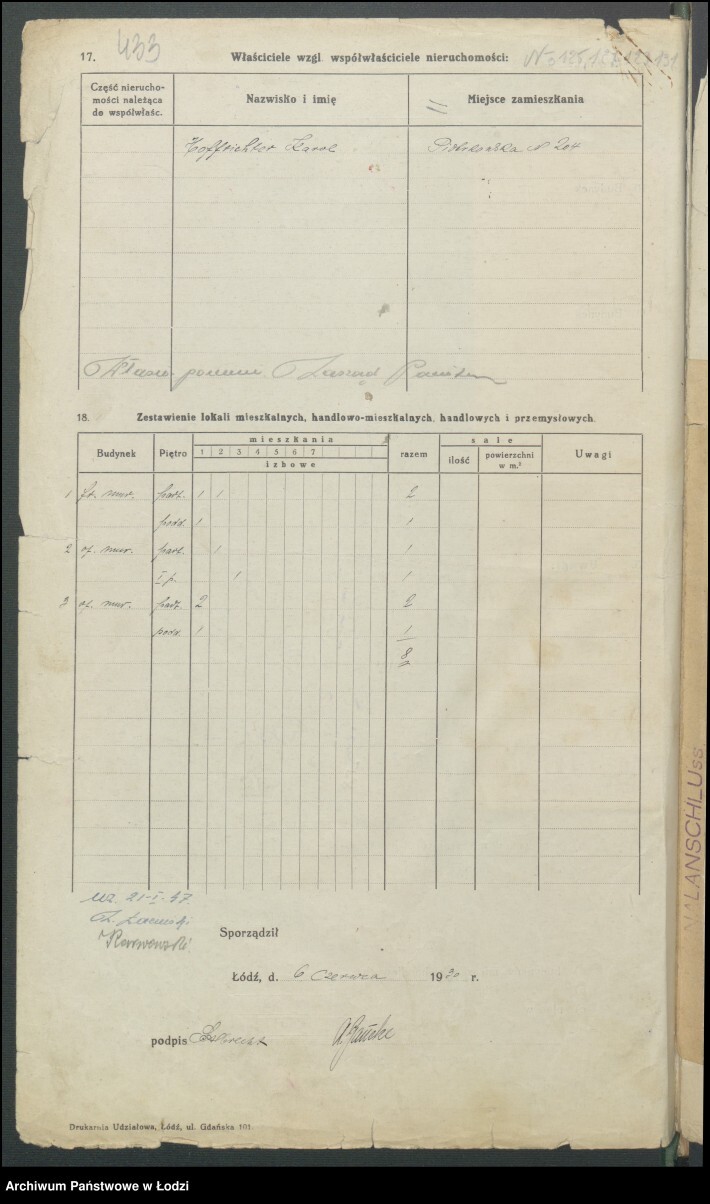 17. 433 Właściciele wzgl. współwłaściciele nieruchomości:
Część nierucho-
mości należąca
do współwłaśc.
Nazwisko i imię
Miejsce zamieszkania
Hoffrichter Karol Piotrkowska № 204
Zarząd
18. Zestawienie lokali mieszkalnych, handlowo-mieszkalnych, handlowych i przemysłowych.
Budynek Piętro mieszkania razem sale Uwagi
1 2 3 4 5 6 7
izbowe
ilość powierzchni
w m.²
1 fr. mur. part. 1 1 2
podd. 1 1
2 of. mur. part. 1 1
I p. 1 1
3 of. mur. part. 2 2
podd. 1 1
8
21-I-47
Sporządził
Łódź, d. 6 czerwca 1930 r.
podpis
Drukarnia Udziałowa, Łódź, ul. Gdańska 101.
NALANSCHLUSS
Archiwum Państwowe w Łodzi